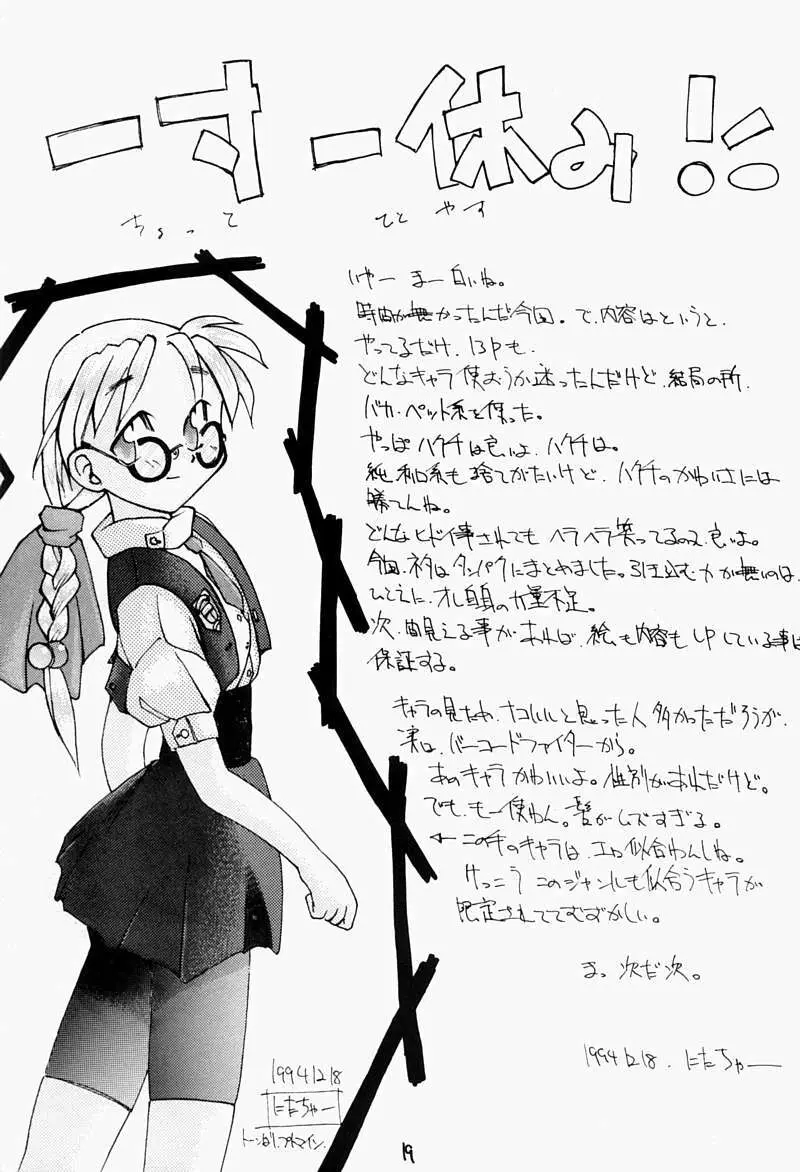 一寸一休み!!
ちょっと ひと やす
いやー まー 白いね。
時間が無かったんだ今回。で、内容はというと、
やってるだけ、13Pも、
どんなキャラ使おうか迷ったんだけど、結局の所、
バカ・ペット系を使った。
やっぱ ハクチは良いよ、ハクチは。
純和系も捨てがたいけど、ハクチのかわいさには
勝てんね。
どんなヒドイ事されても ヘラヘラ笑ってるのって、良いよ。
今回、ネタはタンパクにまとめました。引き込む力が無いのは、
ひとえに、オレ自身の力量不足。
次、由見える事があれば、絵も内容もUPしている事は
保証する。
キャラの見ため、ナコいいと思った人 多かっただろうが、
実は、バーコードファイターから。
あのキャラかわいいよ。性別があれだけど。
でも、も一使わん。髪がムズすぎる。
← この手のキャラは、エロ似合わんしね。
けっこう このジャンルも似合うキャラが
限定されててむずかしい。
まっ 次だ次。
1994 12.18. にたちゃー
1994.12.18
にたちゃー
19